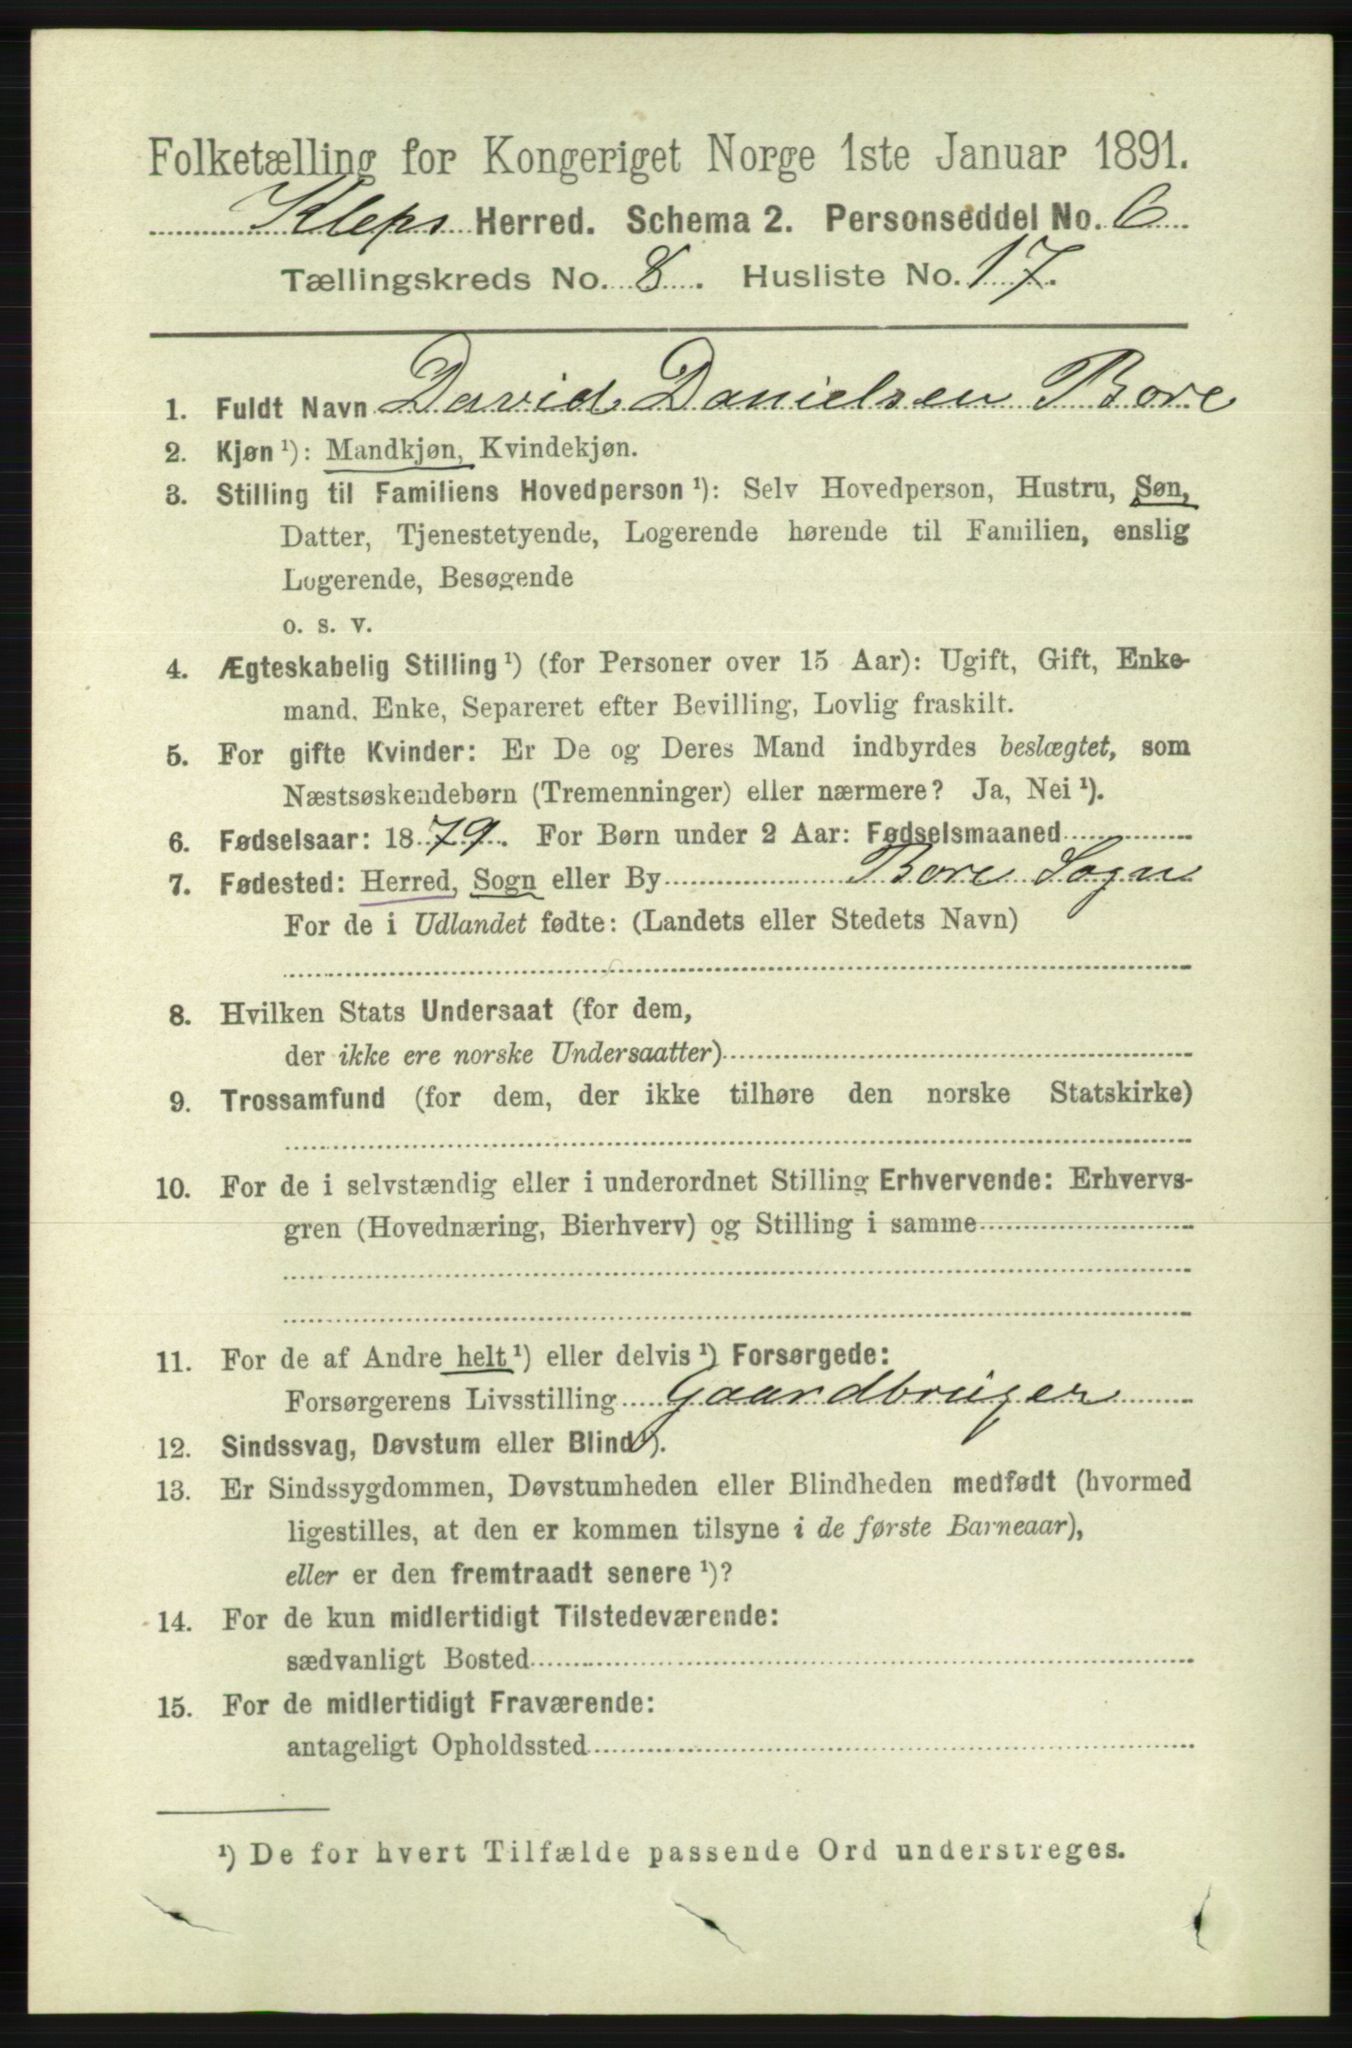 Folketælling for Kongeriget Norge 1ste Januar 1891.
Kleps Herred. Schema 2. Personseddel No. 6
Tællingskreds No. 8. Husliste No. 17.
1. Fuldt Navn David Danielsen Bore
2. Kjøn ¹): Mandkjøn, Kvindekjøn.
3. Stilling til Familiens Hovedperson ¹): Selv Hovedperson, Hustru, Søn,
Datter, Tjenestetyende, Logerende hørende til Familien, enslig
Logerende, Besøgende
o. s. v.
4. Ægteskabelig Stilling ¹) (for Personer over 15 Aar): Ugift, Gift, Enke-
mand, Enke, Separeret efter Bevilling, Lovlig fraskilt.
5. For gifte Kvinder: Er De og Deres Mand indbyrdes beslægtet, som
Næstsøskendebørn (Tremenninger) eller nærmere? Ja, Nei ¹).
6. Fødselsaar: 1879. For Børn under 2 Aar: Fødselsmaaned
7. Fødested: Herred, Sogn eller By Bore Sogn
For de i Udlandet fødte: (Landets eller Stedets Navn)
8. Hvilken Stats Undersaat (for dem,
der ikke ere norske Undersaatter)
9. Trossamfund (for dem, der ikke tilhøre den norske Statskirke)
10. For de i selvstændig eller i underordnet Stilling Erhvervende: Erhvervs-
gren (Hovednæring, Bierhverv) og Stilling i samme
11. For de af Andre helt ¹) eller delvis ¹) Forsørgede:
Forsørgerens Livsstilling Gaardbruger
12. Sindssvag, Døvstum eller Blind ¹).
13. Er Sindssygdommen, Døvstumheden eller Blindheden medfødt (hvormed
ligestilles, at den er kommen tilsyne i de første Barneaar),
eller er den fremtraadt senere ¹)?
14. For de kun midlertidigt Tilstedeværende:
sædvanligt Bosted
15. For de midlertidigt Fraværende:
antageligt Opholdssted
¹) De for hvert Tilfælde passende Ord understreges.